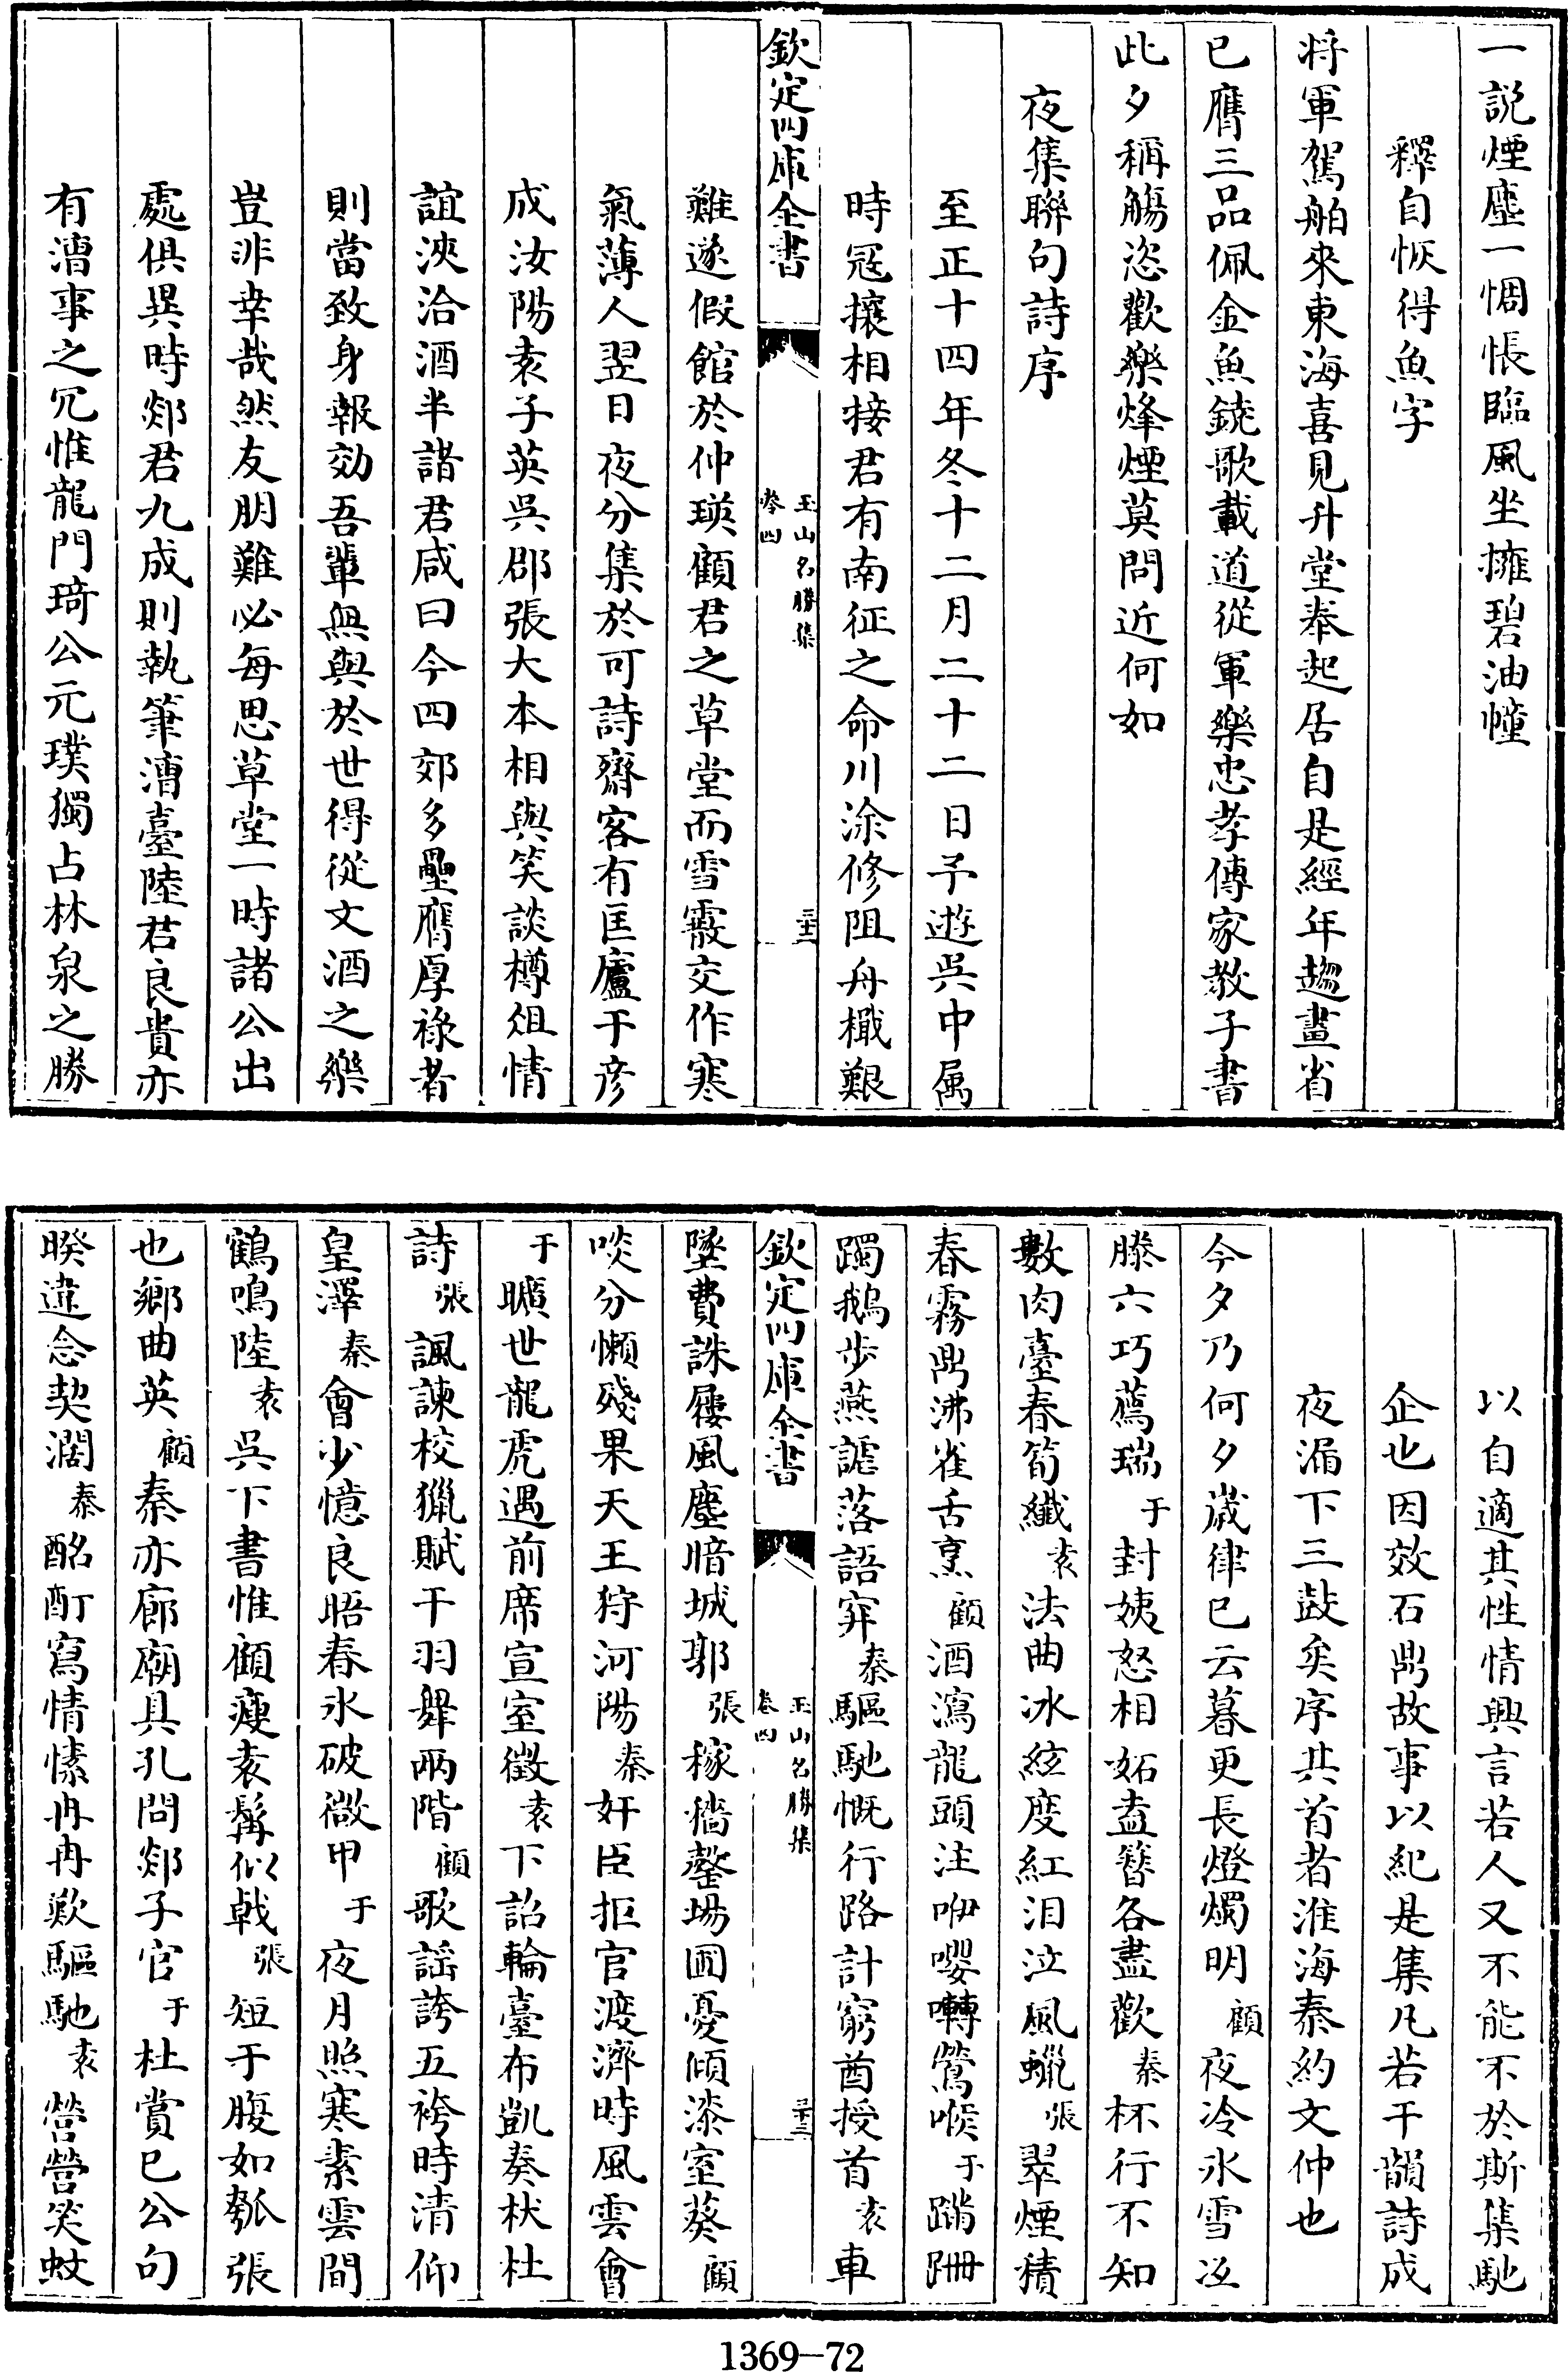 一説煙塵一惆悵臨風坐擁碧油幢
釋自恢得魚字
将軍駕舶來東海喜見升堂奉起居自是經年趨畫省
已膺三品佩金魚鐃歌載道從軍樂忠孝傳家教子書
此夕稱觴恣歡樂烽煙莫問近何如
夜集聯句詩序
至正十四年冬十二月二十二日予遊吳中属
時冦攘相接君有南征之命川涂修阻舟檝艱
欽定四庫全書
玉山名勝集
卷四
三十二
難遂假館於仲瑛顧君之草堂而雪霰交作寒
氣薄人翌日夜分集於可詩齋客有匡廬于彦
成汝陽袁子英吳郡張大本相與笑談樽俎情
誼浹洽酒半諸君咸曰今四郊多壘膺厚祿者
則當致身報効吾輩無與於世得從文酒之樂
豈非幸哉然友朋難必每思草堂一時諸公出
處俱異時郯君九成則執筆漕臺陸君良貴亦
有漕事之冗惟龍門琦公元璞獨占林泉之勝
以自適其性情興言若人又不能不於斯集馳
企也因效石鼎故事以紀是集凡若干韻詩成
夜漏下三鼓矣序其首者淮海秦約文仲也
今夕乃何夕歲律已云暮更長燈燭明顧夜冷氷雪沍
滕六巧薦瑞于封姨怒相妬盍簪各盡歡秦杯行不知
數肉臺春筍纖袁法曲冰絃度紅泪泣風蠟張翠煙積
春霧鼎沸雀舌烹顧酒瀉龍頭注咿嚶囀鶯喉于蹒跚
躅鵝步燕謔落語穽秦驅馳慨行路計窮酋授首袁車
欽定四庫全書
玉山名勝集
卷四
三十三
墜費誅屨風塵暗城郭張稼穡罄場圃憂傾漆室葵顧
啖分懶殘果天王狩河陽秦奸臣拒官渡濟時風雲會
于曠世龍虎遇前席宣室徵袁下詔輪臺布凱奏杕杜
詩張諷諫校獵賦干羽舞兩階顧歌謡誇五袴時清仰
皇澤秦會少憶良晤春氷破微甲于夜月照寒素雲間
鶴鳴陸袁吳下書惟顧瘦袁髯似戟張短于腹如瓠張
也鄉曲英顧秦亦廊廟具孔問郯子官于杜賞已公句
暌違念契濶秦酩酊寫情愫冉冉歎驅馳袁營營笑蚊
1369-72